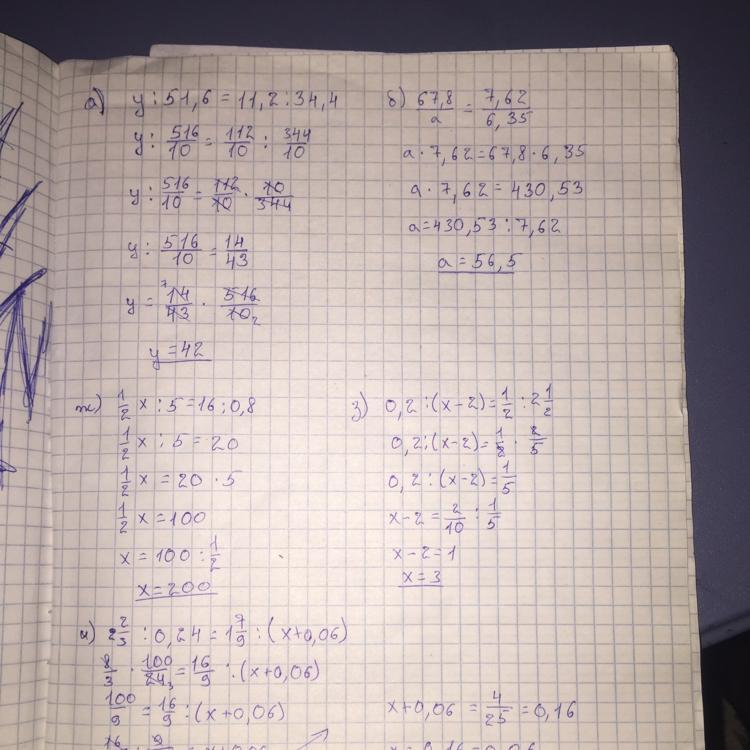 а) y : 51,6 = 11,2 : 34,4
y : 516/10 = 112/10 : 344/10
y : 516/10 = 112/10 · 10/344
y : 516/10 = 14/43
y = 7 14/43 · 516/10 2
y = 42
б) 67,8/a = 7,62/6,35
a · 7,62 = 67,8 · 6,35
a · 7,62 = 430,53
a = 430,53 : 7,62
a = 56,5
ж) 1/2 x : 5 = 16 : 0,8
1/2 x : 5 = 20
1/2 x = 20 · 5
1/2 x = 100
x = 100 : 1/2
x = 200
з) 0,2 : (x - 2) = 1/2 : 2 1/2
0,2 : (x - 2) = 1/2 · 2/5
0,2 : (x - 2) = 1/5
x - 2 = 2/10 : 1/5
x - 2 = 1
x = 3
и) 2 2/3 : 0,24 = 1 7/9 : (x + 0,06)
8/3 · 100/24 3 = 16/9 : (x + 0,06)
100/9 = 16/9 : (x + 0,06)
x + 0,06 = 4/25 = 0,16